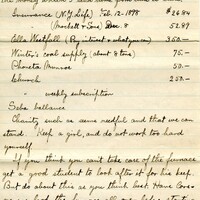 Insurance (N.Y. Life) Feb. 12-1898 $26 84
Dec. 8 52 89
Ella Westfall (By interest + what you can) 350—
Winter's coal supply (about 8 tons) 75—
Phoneta Munroe 50—
Church 250—
" weekly subscription
Seba ballance
Charity such as seems needful and that we can
stand. Keep a girl, and do not work too hard
yourself
If you think you can't take care of the furnace
get a good student to look after it for his keep.
But do about this as you think best. Have